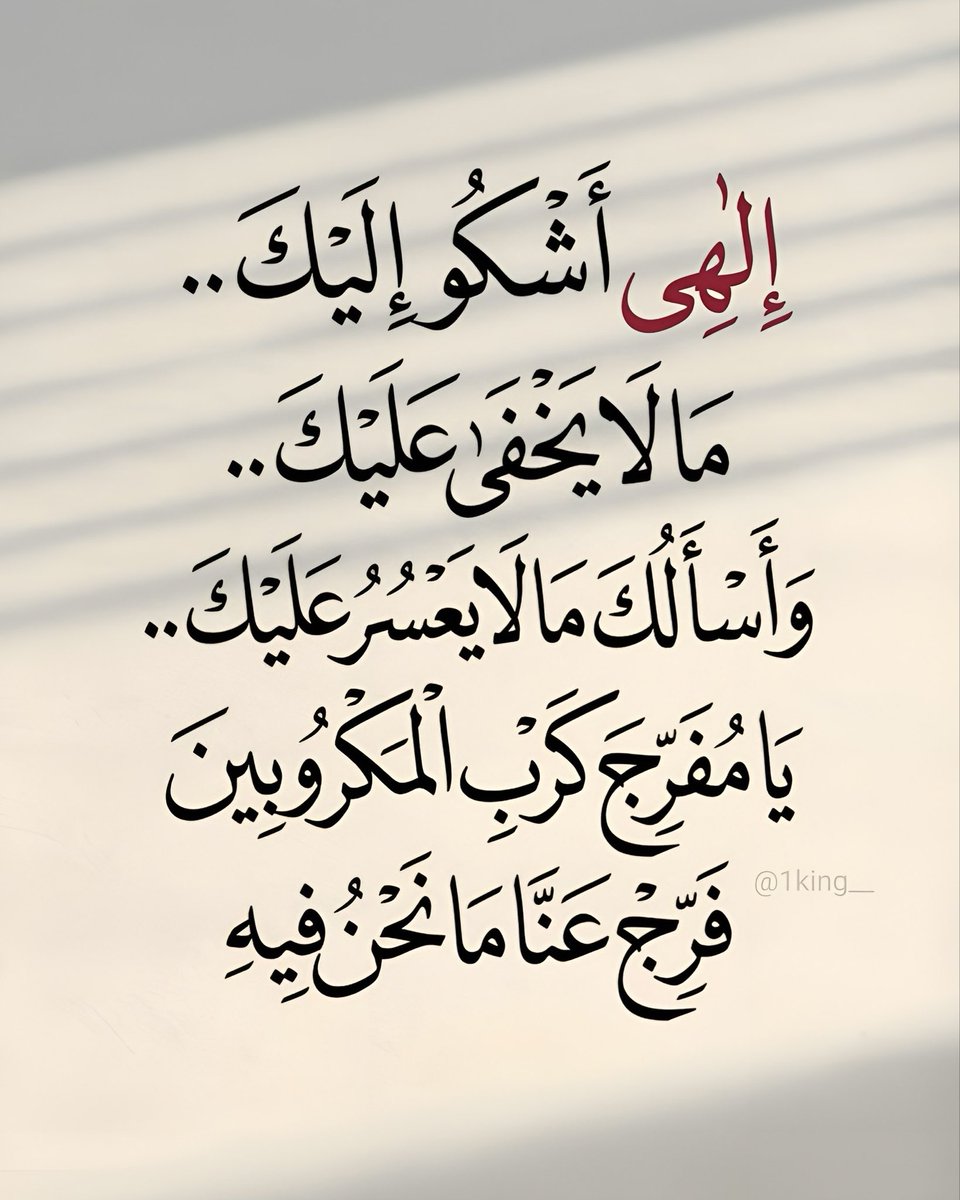 إِلٰهِى أَشْكُو إِلَيْكَ..
مَا لَا يَخْفَىٰ عَلَيْكَ..
وَأَسْأَلُكَ مَا لَا يَعْسُرُ عَلَيْكَ..
يَا مُفَرِّجَ كَرْبِ الْمَكْرُوبِينَ
@1king__
فَرِّجْ عَنَّا مَا نَحْنُ فِيهِ